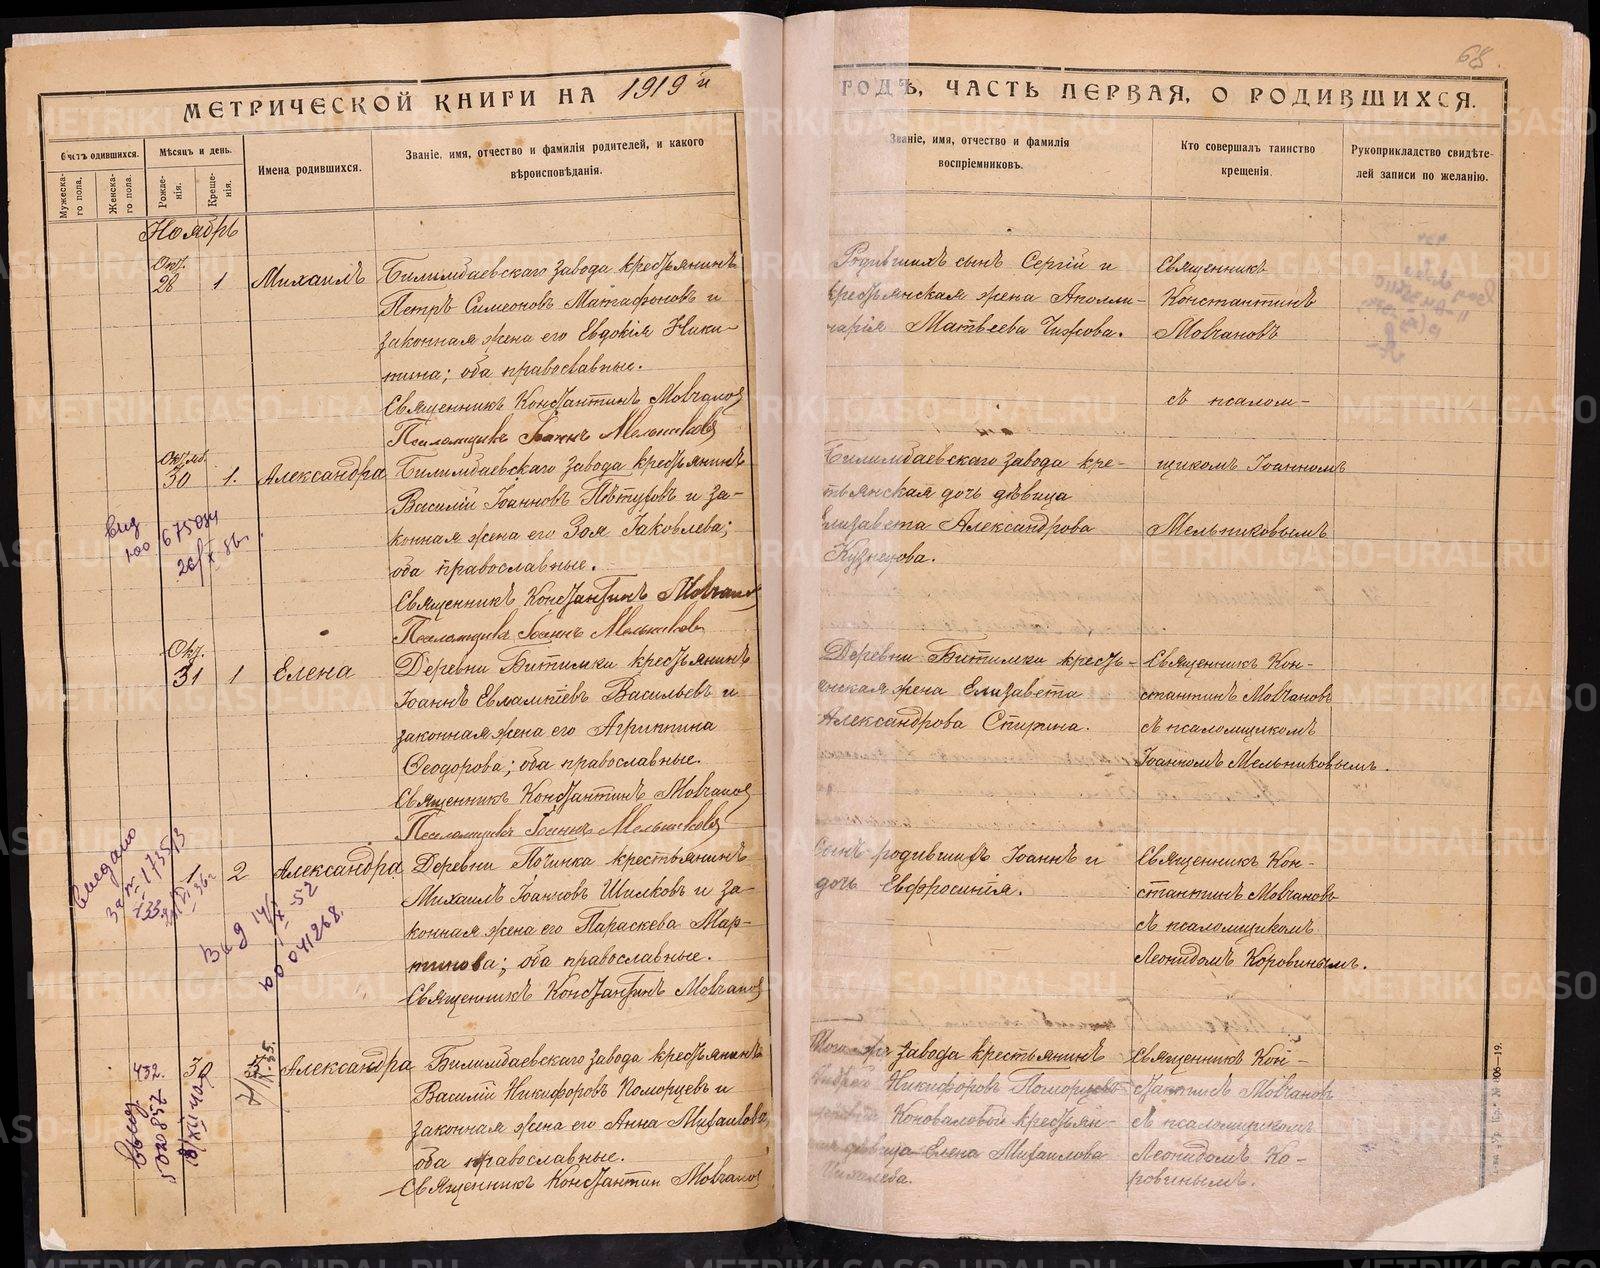 68.
МЕТРИЧЕСКОЙ КНИГИ НА 1919 й
ГОДЪ, ЧАСТЬ ПЕРВАЯ, О РОДИВШИХСЯ.
Счетъ родившихся.
Мужеска-го пола.
Женска-го пола.
Мѣсяцъ и день.
Рожде-нія.
Креще-нія.
Имена родившихся.
Званіе, имя, отчество и фамилія родителей, и какого
вѣроисповѣданія.
Званіе, имя, отчество и фамилія
воспріемниковъ.
Кто совершалъ таинство
крещенія.
Рукоприкладство свидѣте-
лей записи по желанію.
Ноябрь
Окт.
28 1 Михаилъ
Билимбаевскаго завода крестьянинъ
Петръ Симеоновъ Матафоновъ и
законная жена его Евдокія Ники-
тина; оба православные.
Священникъ Константинъ Мовчанов
Псаломщикъ Іоаннъ Мельниковъ
Родившихъ сынъ Сергій и
крестьянская жена Аполли-
нарія Матвѣева Чижова.
Священникъ
Константинъ
Мовчановъ
съ псалом-
щикомъ Іоанномъ
Мельниковымъ
Октяб.
30 1. Александра
Билимбаевскаго завода крестьянинъ
Василій Іоанновъ Пѣтуховъ и за-
конная жена его Зоя Іаковлева;
оба православные.
Священникъ Константинъ Мовчанов
Псаломщикъ Іоаннъ Мельников
Билимбаевскаго завода кре-
стьянская дочь дѣвица
Елизавета Александрова
Кузнецова.
Окт.
31 1 Елена
Деревни Битимки крестьянинъ
Іоаннъ Евлампіевъ Васильевъ и
законная жена его Агриппина
Ѳеодорова; оба православные.
Священникъ Константинъ Мовчанов
Псаломщикъ Іоаннъ Мельниковъ
Деревни Битимки кресть-
янская жена Елизавета
Александрова Спирина.
Священникъ Кон-
стантинъ Мовчановъ
съ псаломщикомъ
Іоанномъ Мельниковымъ.
2 Александра
Деревни Починка крестьянинъ
Михаилъ Іоанновъ Шилковъ и за-
конная жена его Параскева Мар-
тинова; оба православные.
Священникъ Константинъ Мовчанов
Сынъ родившихъ Іоаннъ и
дочь Евфросинія.
Священникъ Кон-
стантинъ Мовчановъ
съ псаломщикомъ
Леонидомъ Коровинымъ.
Александра
Билимбаевскаго завода крестьянинъ
Василій Никифоровъ Поморцевъ и
законная жена его Анна Михаилова,
оба православные.
Священникъ Константин Мовчанов
завода крестьянинъ
Андрей Никифоровъ Поморцевъ
Коноваловой крестьян-
дѣвица Елена Михаилова
Священникъ Кон-
стантинъ Мовчановъ
съ псаломщикомъ
Леонидомъ Ко-
ровинымъ.
432.
METRIKI.GASO-URAL.RU